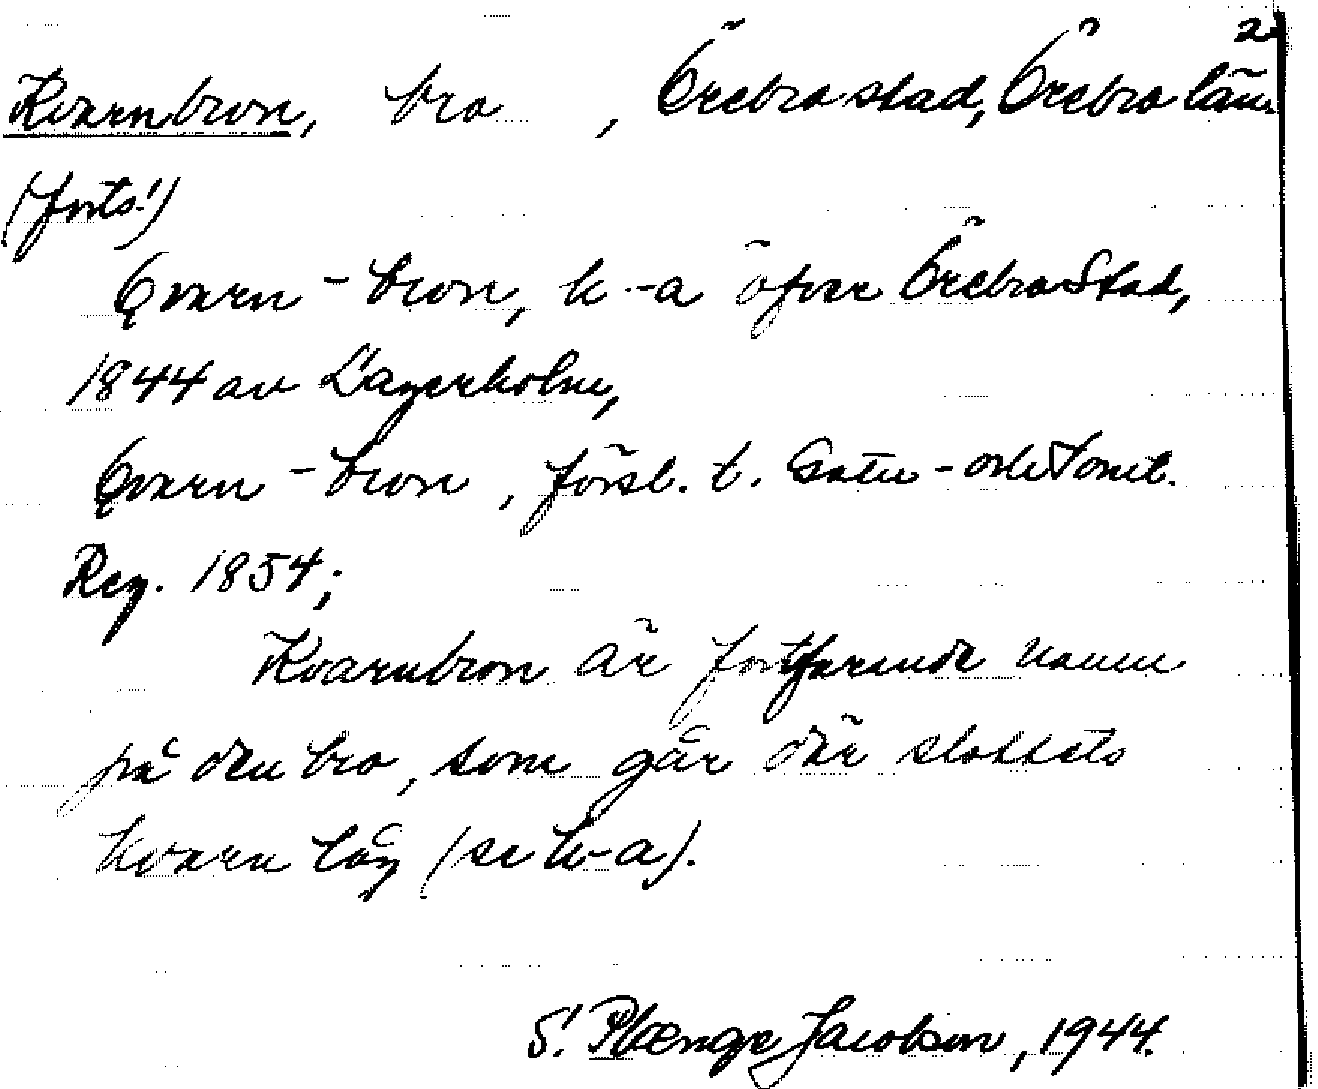 2
Kvarnbron, bro , Örebro stad, Örebro län.
(forts.)
Qvarn-bron, k-a öfver Örebro Stad,
1844 av Lagerholm,
Qvarn-bron, försl. t. Gatu- och Tomt.
Reg. 1854;
Kvarnbron är fortfarande namn
på den bro, som går där slottets
kvarn låg (se k-a).
S. Plænge Jacobson, 1944.